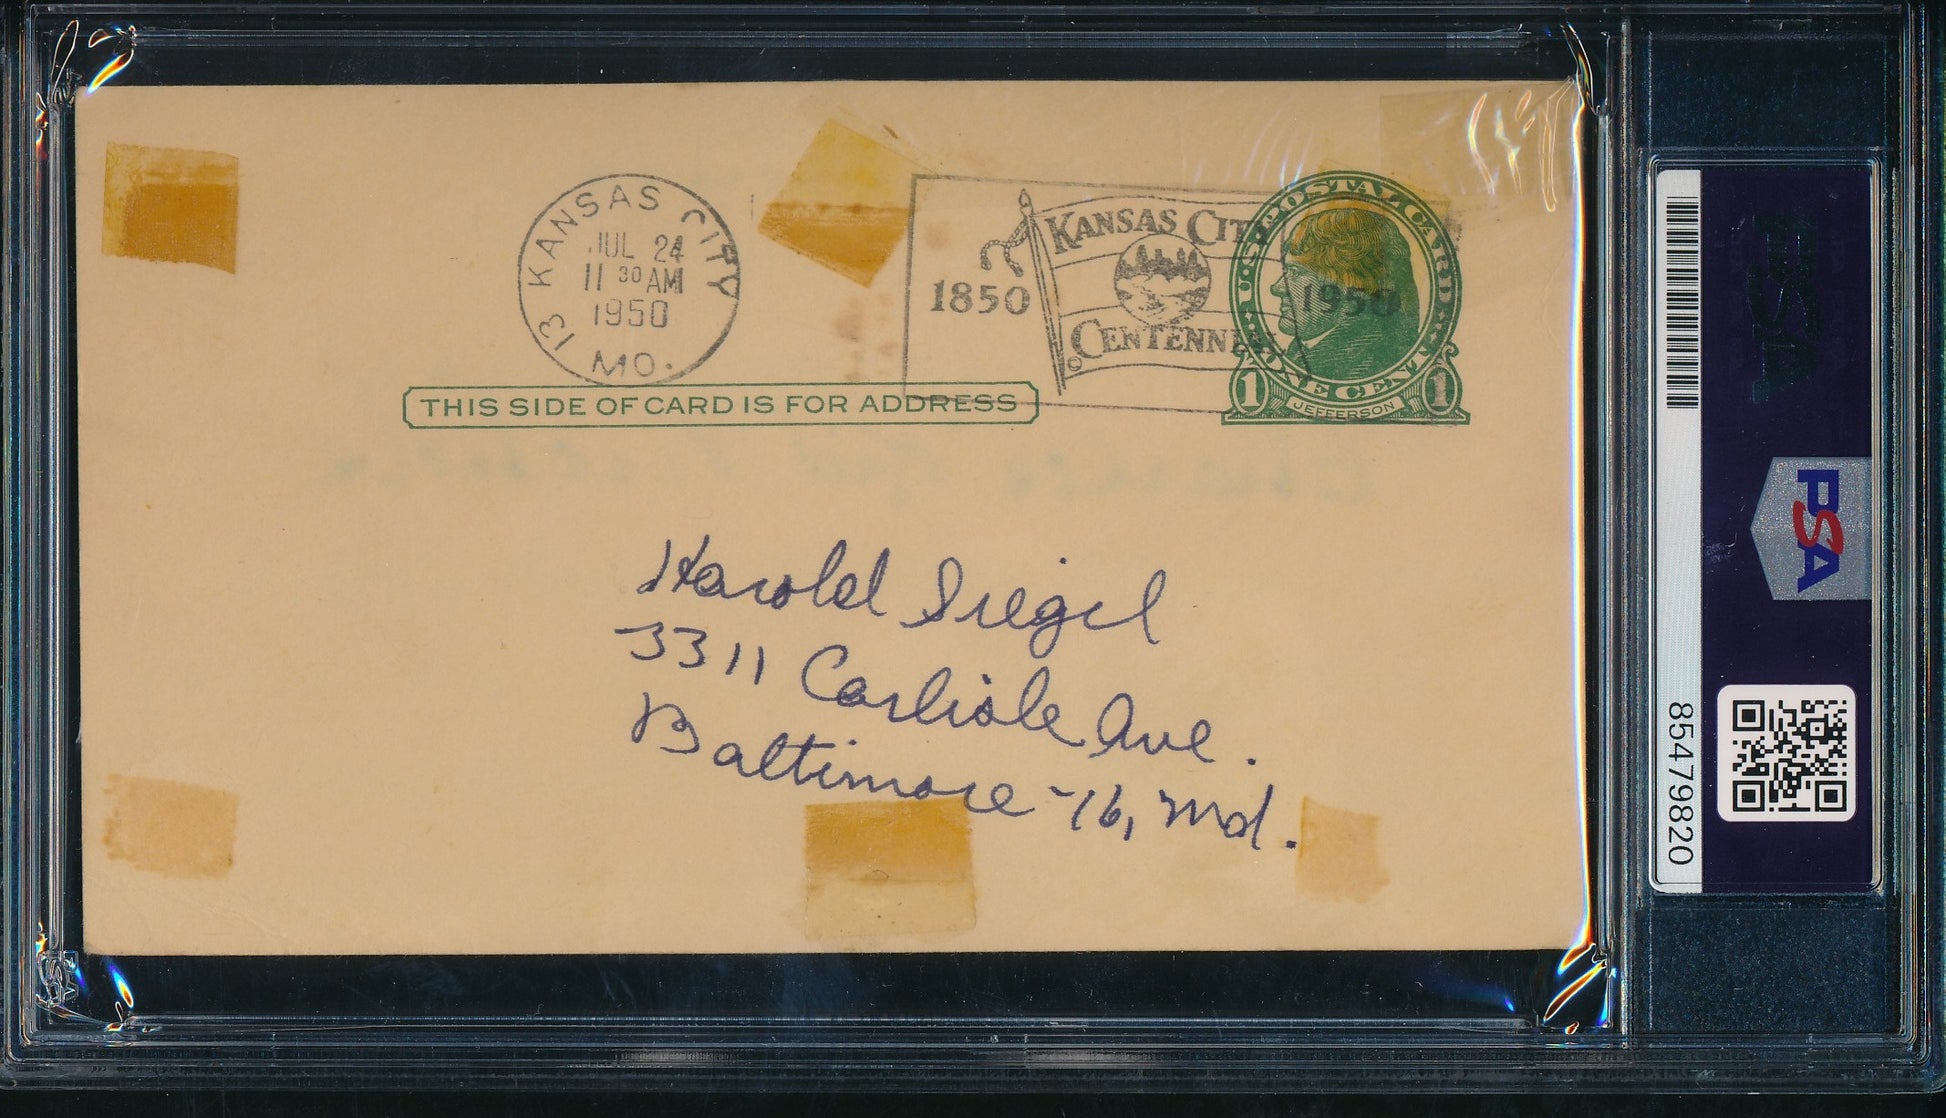 KANSAS CITY
JUL 24
11 30 AM
1950
13 MO.
1850
KANSAS CITY
CENTENNIAL
1950
U·S·POSTAL CARD
ONE CENT
1 JEFFERSON 1
THIS SIDE OF CARD IS FOR ADDRESS
Harold Siegel
3311 Carlisle Ave.
Baltimore -16, Md.
PSA
85479820